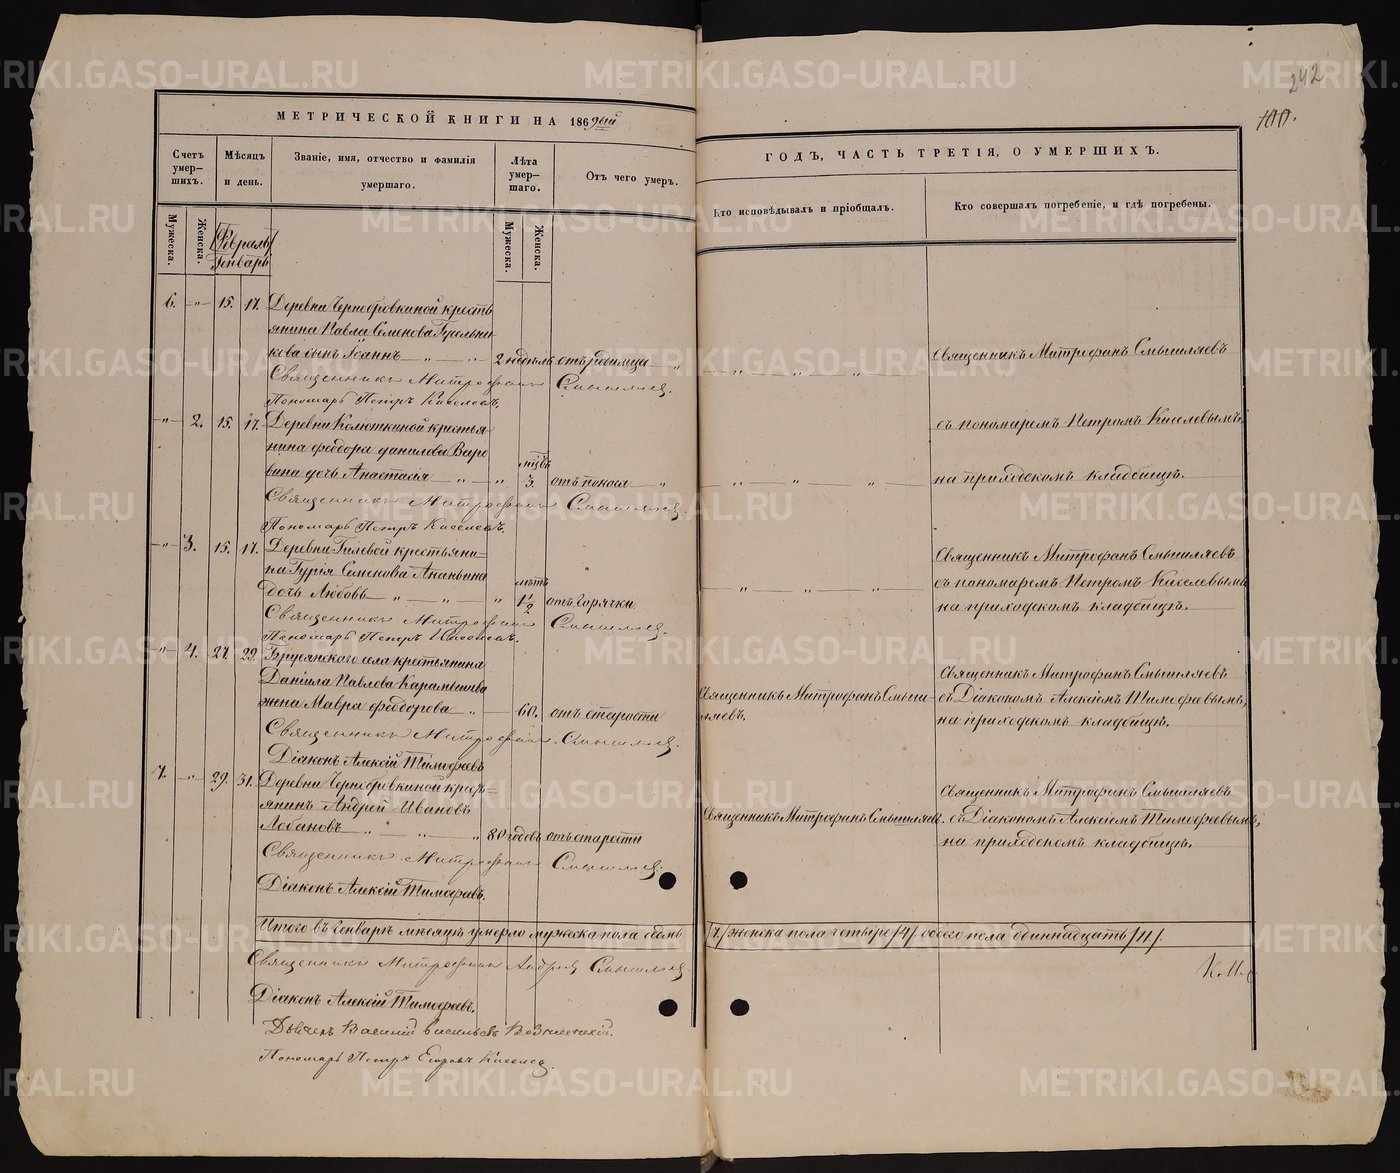 МЕТРИЧЕСКОЙ КНИГИ НА 1869ый
Счетъ умершихъ.
Мѣсяцъ и день.
Званіе, имя, отчество и фамилія умершаго.
Лѣта умершаго.
Отъ чего умеръ.
Мужеска.
Женска.
Февраль
Генварь
Мужеска.
Женска.
6. -"- 15. 17. Деревни Чернобровкиной кресть
янина Павла Семенова Гусельни-
кова сынъ Іоаннъ -"- 2 недѣль отъ родимца "
Священникъ Митрофанъ Смышляев.
Пономарь Петръ Киселевъ.
-"- 2. 15. 17. Деревни Колюткиной крестья-
нина Феодора Данилова
дочь Анастасія -"- " мцвъ 3. отъ поноса "
Священникъ Митрофанъ Смышляев.
Пономарь Петръ Киселевъ.
-"- 3. 15. 17. Деревни Гилевой крестьяни-
на Гурія Семенова Ананьина
дочь Любовь -"- " " лѣтъ 1 1/2 отъ горячки
Священникъ Митрофанъ Смышляев.
Пономарь Петръ Киселевъ.
-"- 4. 27. 29. Бруснянского села крестьянина
Даніила Павлова Карамышева
жена Мавра Феодорова -"- 60. отъ старости
Священникъ Митрофанъ Смышляев.
Діаконъ Алексій Тимофеевъ
7. -"- 29. 31. Деревни Чернобровкиной крест=
янинъ Андрей Ивановъ
Лобановъ " " " 80 годовъ отъ старости
Священникъ Митрофанъ Смышляев.
Діаконъ Алексій Тимофеевъ.
Итого въ Генварѣ мѣсяцѣ умерло мужеска пола седмь
Священникъ Митрофанъ Смышляев.
Діаконъ Алексій Тимофеевъ.
Дьячекъ Василій Васильевъ Вознесенскій.
Пономарь Петръ Егоровъ Киселев.
242
100.
ГОДЪ, ЧАСТЬ ТРЕТІЯ, О УМЕРШИХЪ.
Кто исповѣдывалъ и пріобщалъ.
Кто совершалъ погребеніе, и гдѣ погребены.
Священникъ Митрофанъ Смышляевъ
" " "
съ пономаремъ Петромъ Киселевымъ,
на приходскомъ кладбищѣ.
" " "
Священникъ Митрофанъ Смышляевъ
съ пономаремъ Петромъ Киселевымъ
на приходскомъ кладбищѣ.
" " "
Священникъ Митрофанъ Смыш-
ляевъ.
Священникъ Митрофанъ Смышляевъ
съ Діакономъ Алексіемъ Тимофеевымъ,
на приходскомъ кладбищѣ.
Священникъ Митрофанъ Смышляевъ.
Священникъ Митрофанъ Смышляевъ
съ Діакономъ Алексіемъ Тимофеевымъ,
на приходскомъ кладбищѣ.
/7./ женска пола четыре /4/. обоего пола одиннадцать /11/.
METRIKI.GASO-URAL.RU